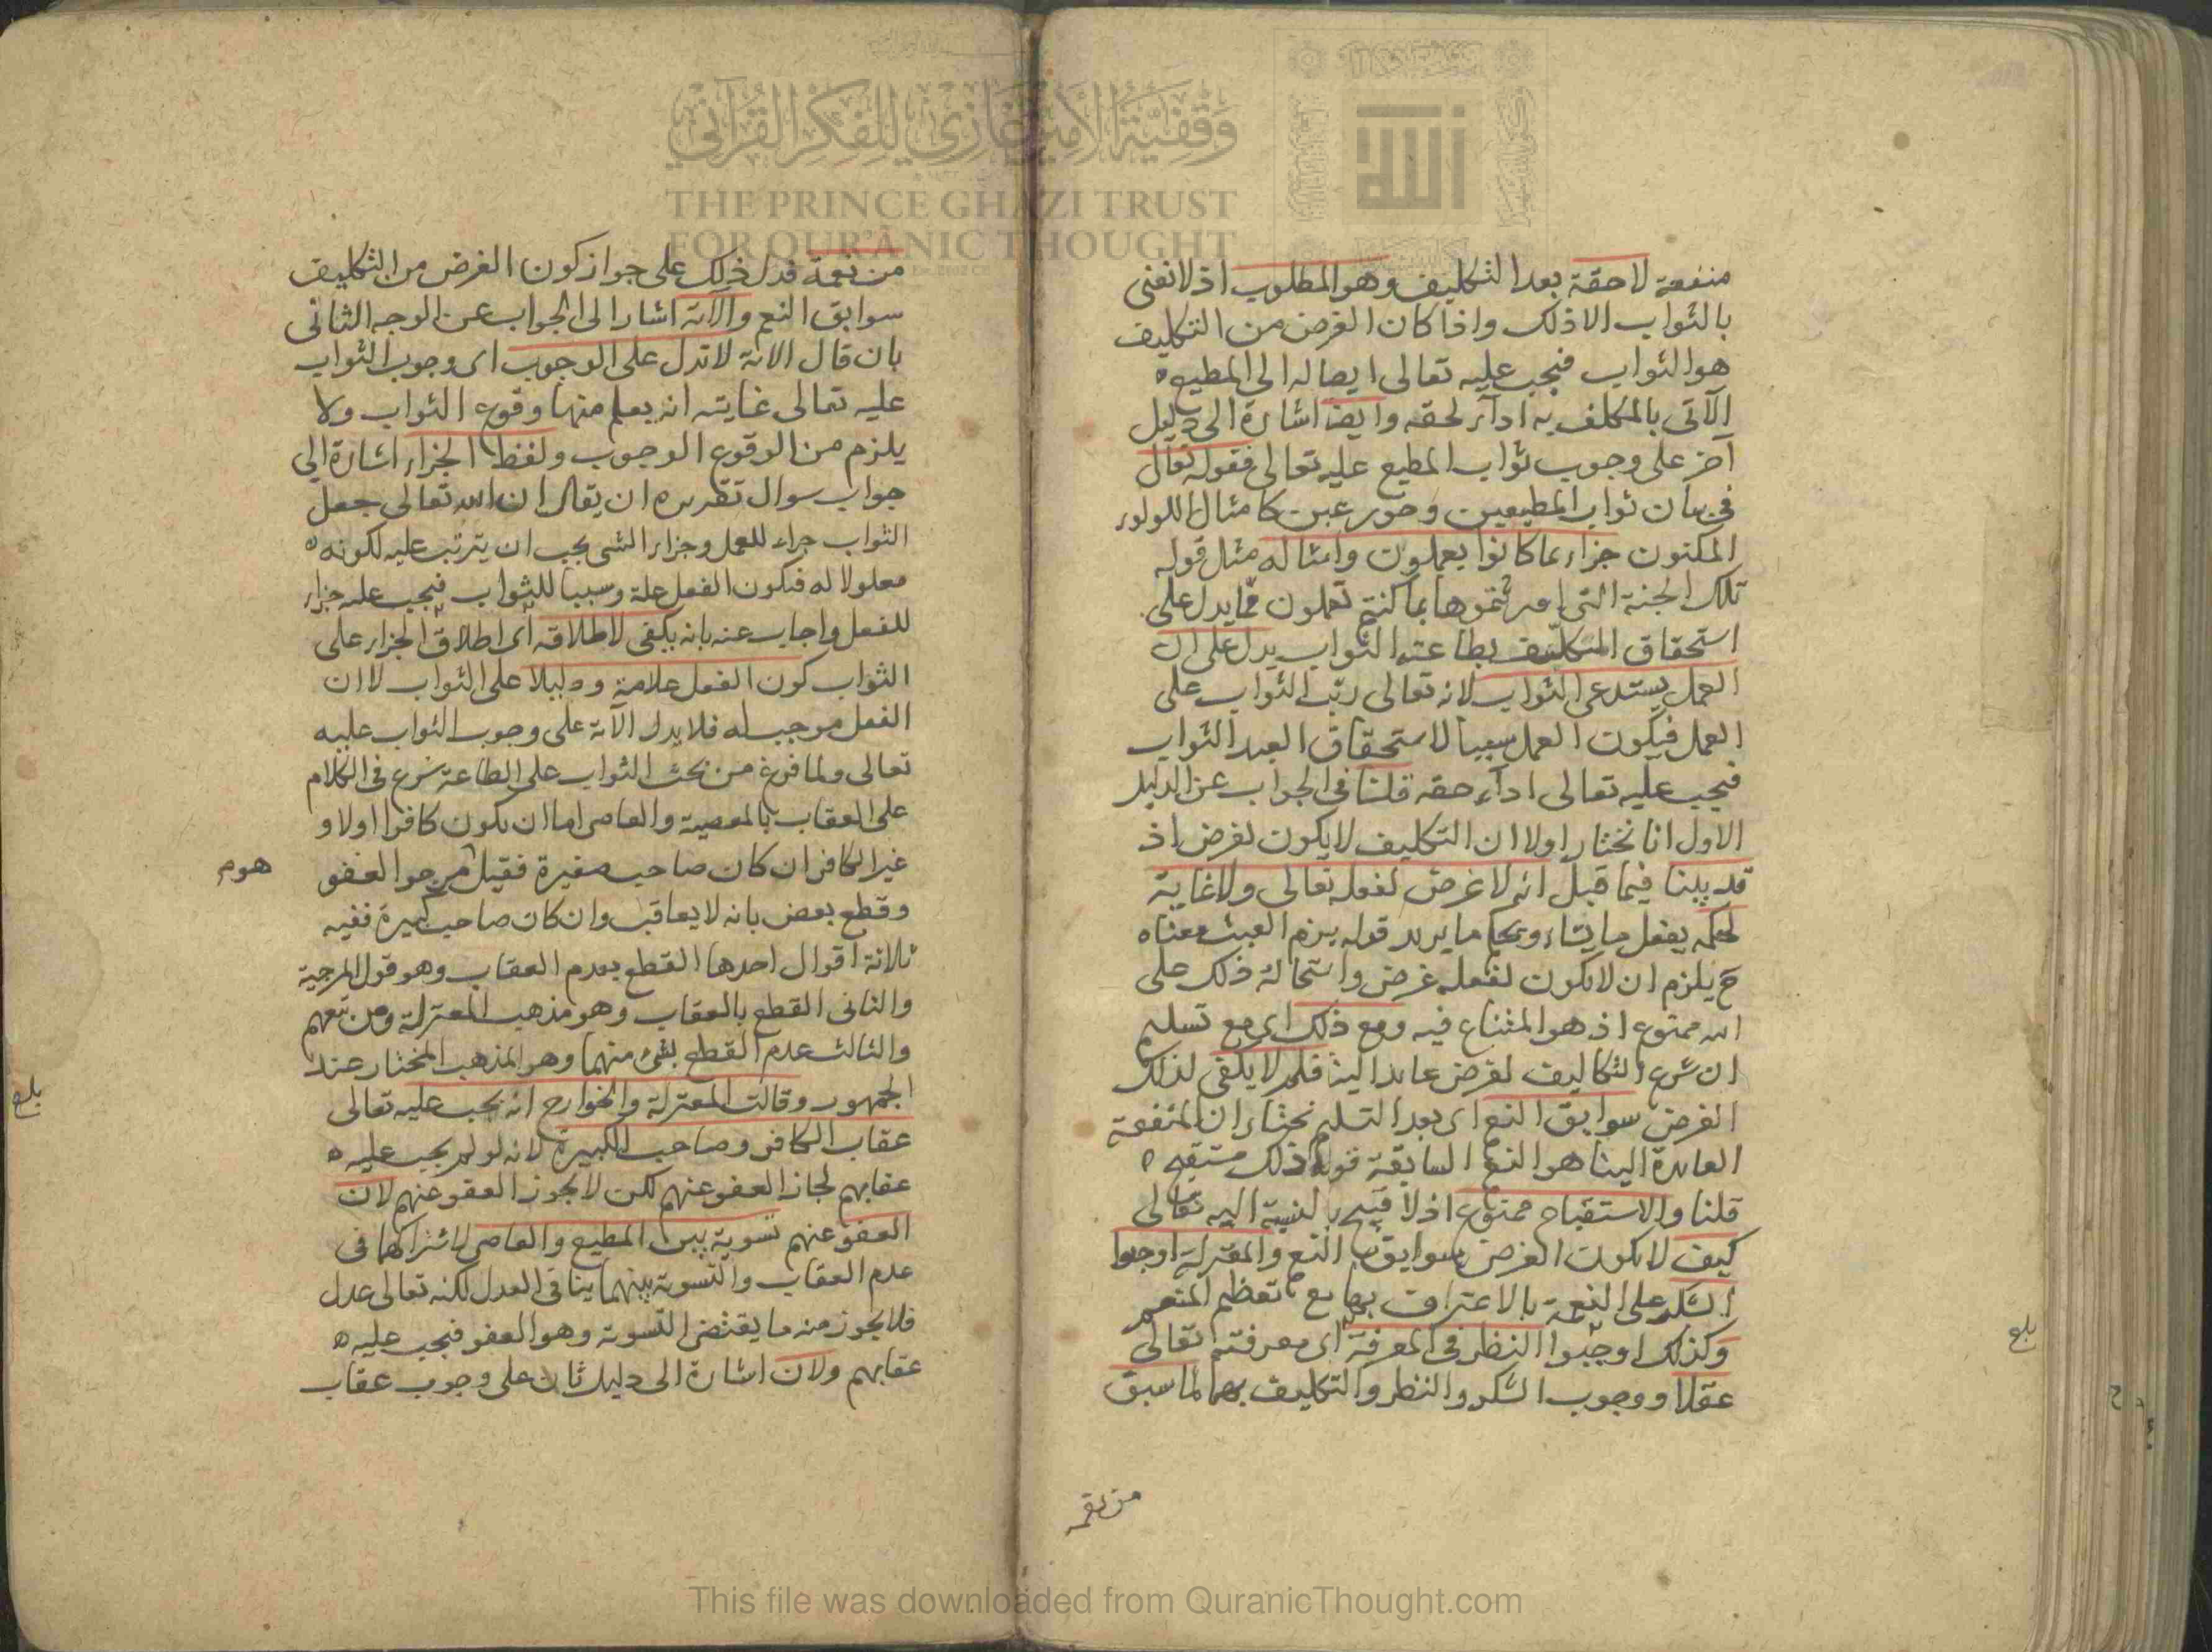 منفعة لاحقة بعد التكليف وهو المطلوب اذ لا نعنى
بالثواب الا ذلك واذا كان الغرض من التكليف
هو الثواب فيجب عليه تعالى ايصاله الى المطيع
الآتى بالمكلف به ادآء لحقه وايضا اشارة الى دليل
آخر على وجوب ثواب المطيع عليه تعالى فقوله تعالى
فى بيان ثواب المطيعين وحور عين كامثال اللولوء
المكنون جزاء بما كانوا يعملون وامثاله مثل قوله
تلك الجنة التى اورثتموها بما كنتم تعملون مما يدل على
استحقاق المتكليف بطاعته الثواب يدل على ان
العمل يستدعى الثواب لانه تعالى رتب الثواب على
العمل فيكون العمل سببا لاستحقاق العبد الثواب
فيجب عليه تعالى ادآء حقه قلنا فى الجواب عن الدليل
الاول انا نختار اولا ان التكليف لا يكون لغرض اذ
قد بينا فيما قبل انه لا غرض لفعله تعالى ولا غاية
لحكمه يفعل ما يشاء ويحكم ما يريد قوله يلزم العبث معناه
ح يلزم ان لا يكون لفعله غرض واستحالة ذلك على
الله ممنوع اذ هو المتنازع فيه ومع ذلك اى مع تسليم
ان شرع التكاليف لغرض عايد الينا فلم لا يكفى لذلك
الغرض سوابق النعم اى بعد التسليم نختار ان المنفعة
العايدة الينا هو النعم السابقة قوله ذلك مستقبح
قلنا والاستقباح ممنوع اذ لا قبيح بالنسبة اليه تعالى
كيف لا يكون الغرض سوابق النعم والمعتزلة اوجبوا
الشكر على النعمة بالاعتراف بها مع تعظيم المنعم
وكذلك اوجبوا النظر فى المعرفة اى معرفته تعالى
عقلا ووجوب الشكر والنظر والتكليف بهما لما سبق
من نعمة
بلغ
من نعمة فدل ذلك على جواز كون الغرض من التكليف
سوابق النعم والآية اشار الى الجواب عن الوجه الثانى
بان قال الاية لا تدل على الوجوب اى وجوب الثواب
عليه تعالى غايته انه يعلم منها وقوع الثواب ولا
يلزم من الوقوع الوجوب ولفظ الجزاء اشارة الى
جواب سوال تقريره ان يقال ان الله تعالى جعل
الثواب جزاء للعمل وجزاء الشى يجب ان يترتب عليه لكونه
معلولا له فيكون الفعل علة وسببا للثواب فيجب عليه جزاء
للفعل واجاب عنه بانه يكفى لاطلاقه اى اطلاق الجزاء على
الثواب كون الفعل علامة ودليلا على الثواب لا ان
الفعل موجب له فلا يدل الآية على وجوب الثواب عليه
تعالى ولما فرغ من بحث الثواب على الطاعة شرع فى الكلام
على العقاب بالمعصية والعاصى اما ان يكون كافرا اولا و
غير الكافر ان كان صاحب صغيرة فقيل مرجو العفو
هوم
وقطع بعض بانه لا يعاقب وان كان صاحب كبيرة ففيه
ثلاثة اقوال احدها القطع بعدم العقاب وهو قول المرجية
والثانى القطع بالعقاب وهو مذهب المعتزلة ومن تبعهم
والثالث عدم القطع بشئ منهما وهو المذهب المختار عند
الجمهور وقالت المعتزلة والخوارج انه يجب عليه تعالى
بلغ
عقاب الكافر وصاحب الكبيرة لانه لو لم يجب عليه
عقابهم لجاز العفو عنهم لكن لا يجوز العفو عنهم لان
العفو عنهم تسوية بين المطيع والعاصى لاشتراكهما فى
عدم العقاب والتسوية بينهما ينافى العدل لكنه تعالى عدل
فلا يجوز منه ما يقتضى التسوية وهو العفو فيجب عليه
عقابهم ولان اشارة الى دليل ثان على وجوب عقاب
وقفية الأمير غازي للفكر القرآني
THE PRINCE GHAZI TRUST
FOR QUR'ĀNIC THOUGHT
This file was downloaded from QuranicThought.com